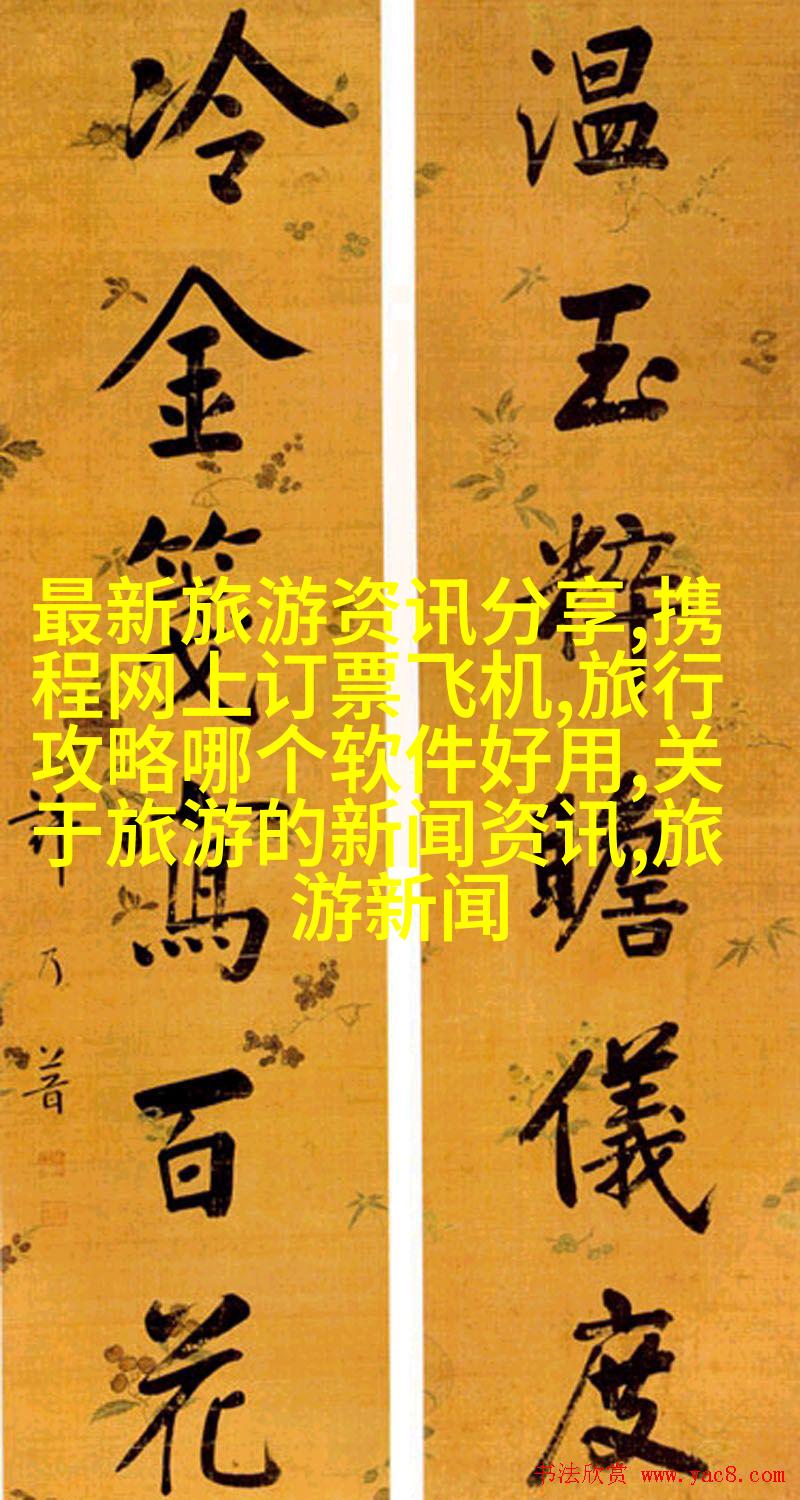 温玉粹瞻儀度
冷金箋寫百花
許乃普
最新旅游资讯分享,携
程网上订票飞机,旅行
攻略哪个软件好用,关
于旅游的新闻资讯,旅
游新闻
书法欣赏 www.yac8.com